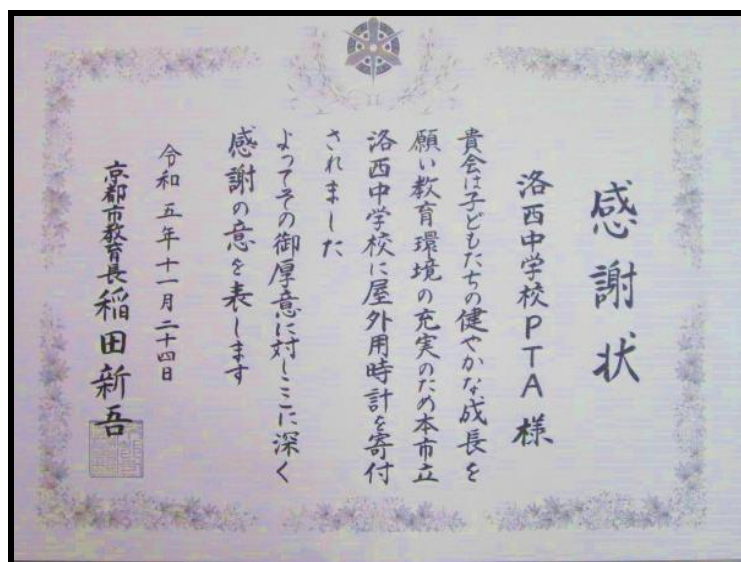 感謝状
洛西中学校PTA様
貴会は子どもたちの健やかな成長を
願い教育環境の充実のため本市立
洛西中学校に屋外用時計を寄付
されました
よってその御厚意に対しここに深く
感謝の意を表します
令和五年十一月二十四日
京都市教育長稲田新吾